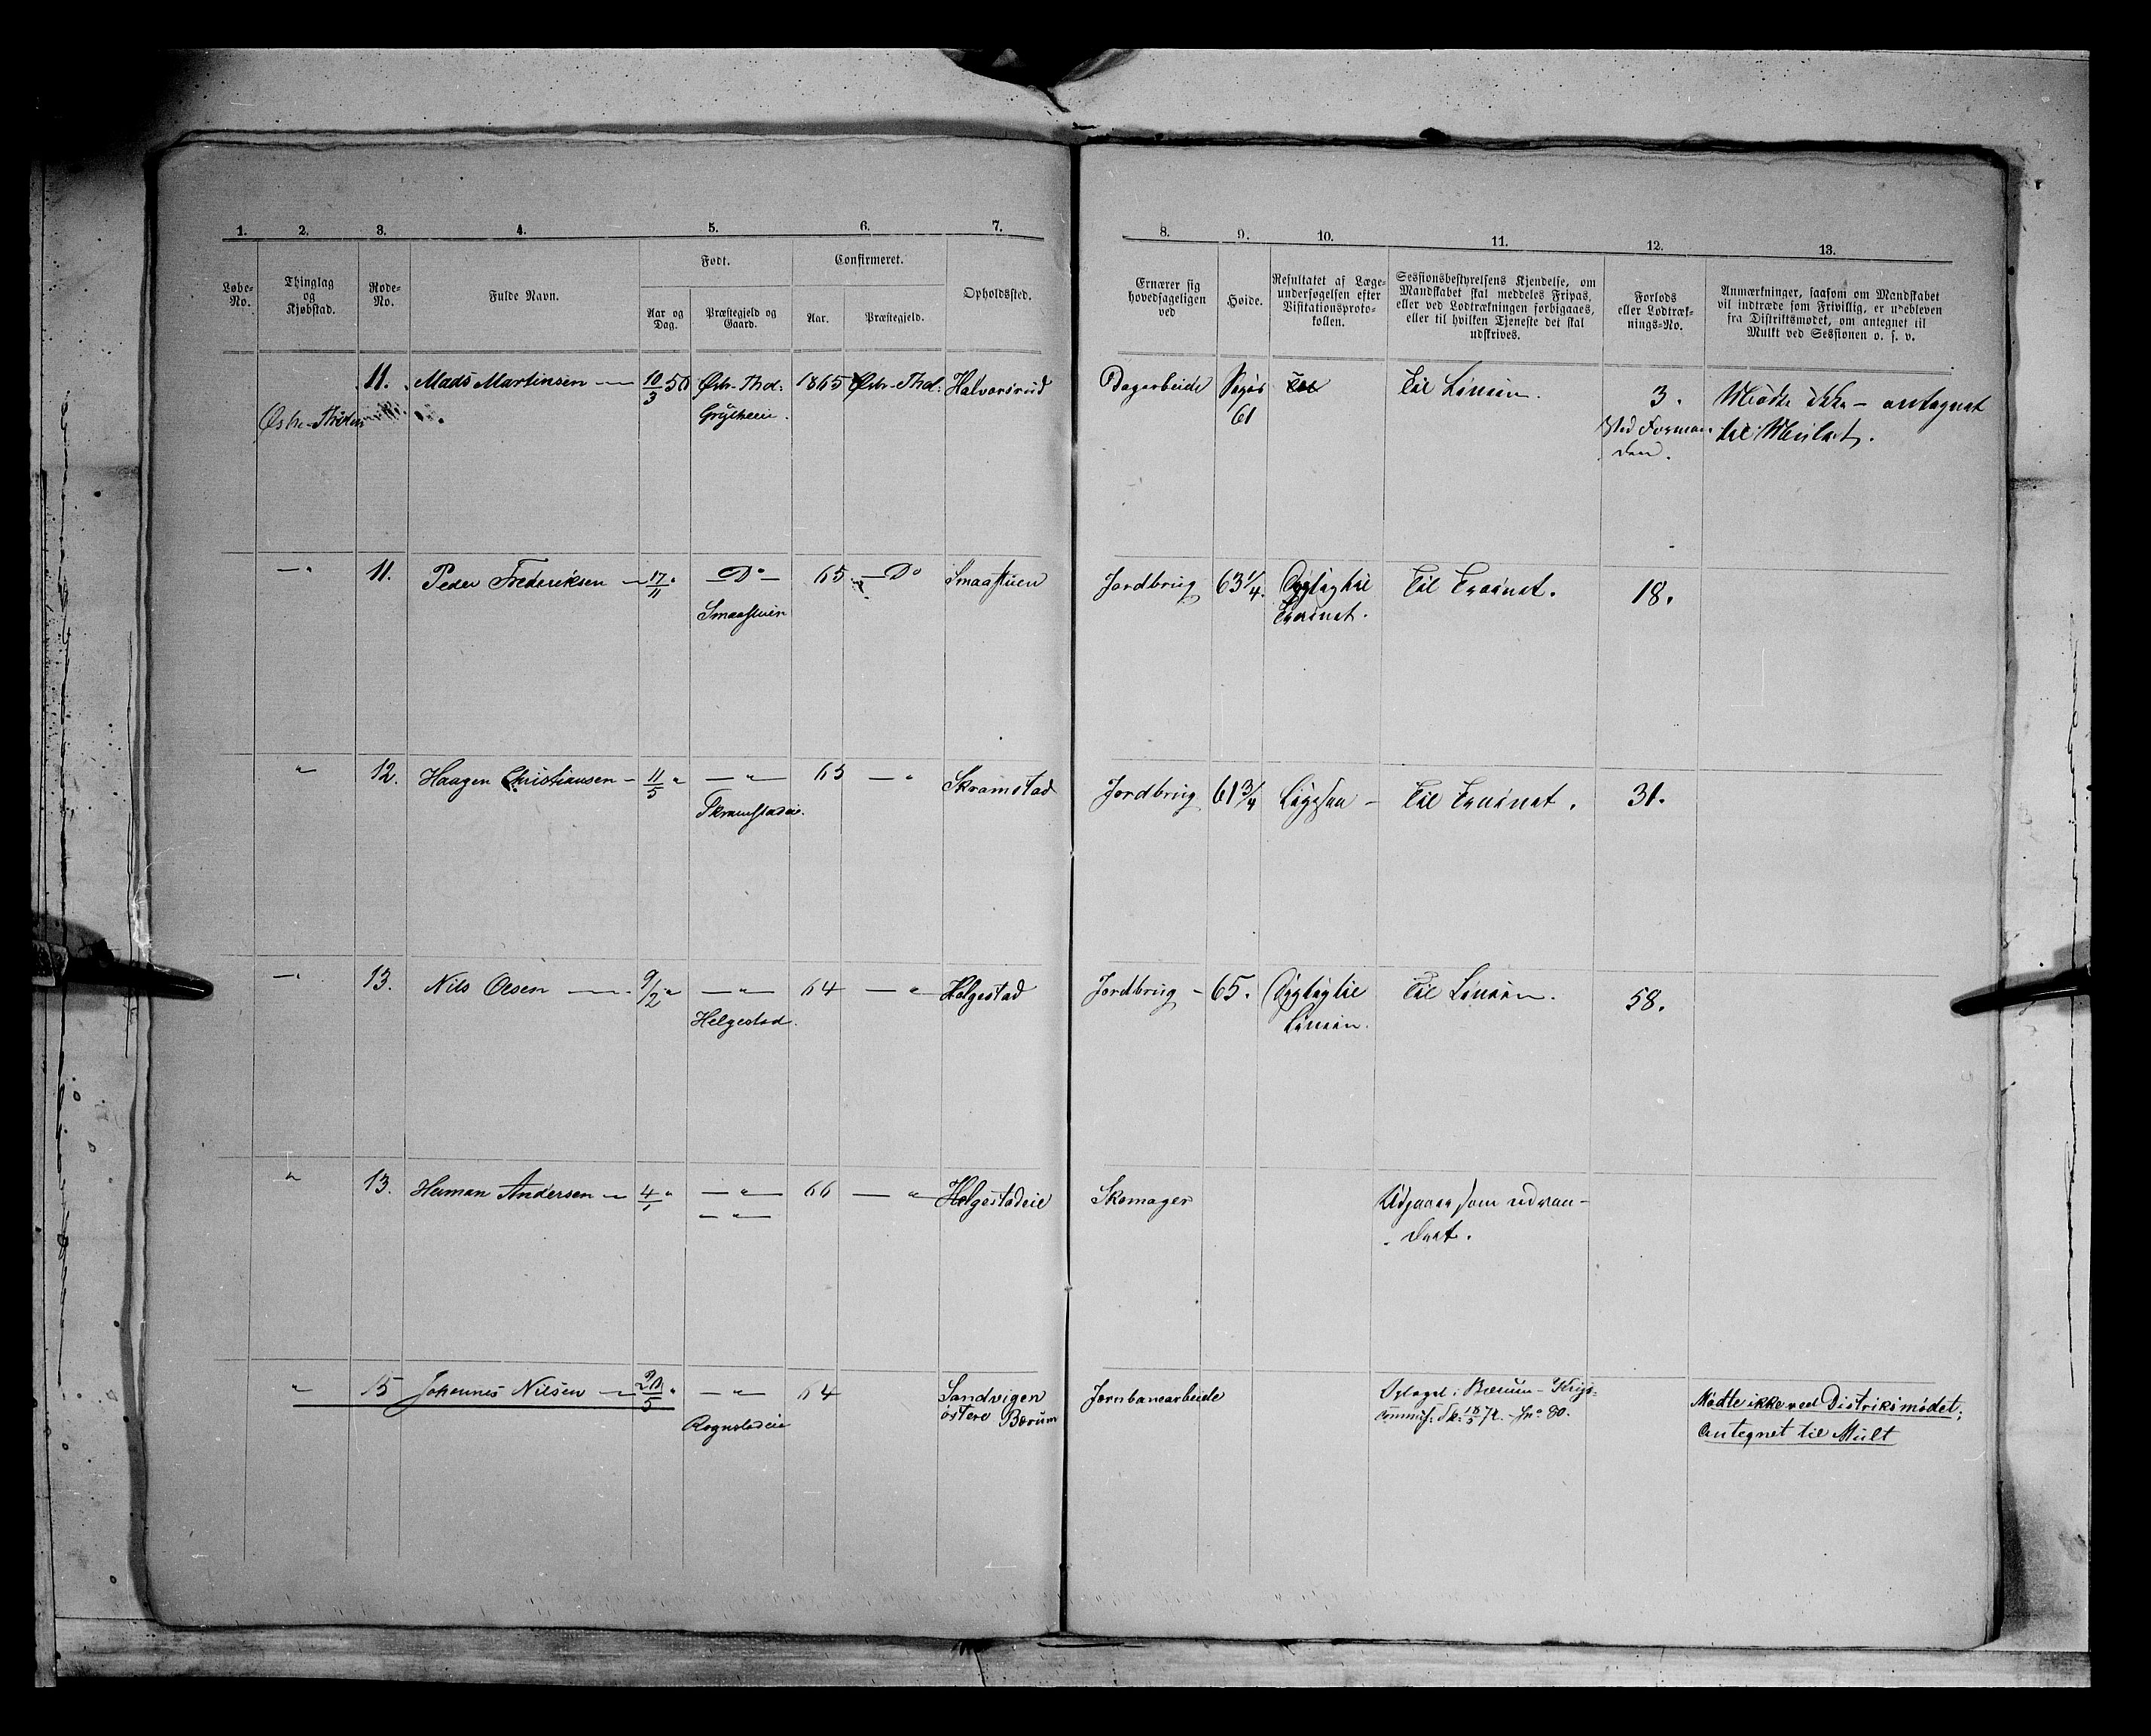 1. 2. 3. 4. 5. 6. 7.
Løbe-No. Thinglag og Kjøbstad. Rode-No. Fulde Navn. Født. Confirmeret. Opholdssted.
Aar og Dag. Præstegjeld og Gaard. Aar. Præstegjeld.
11. Mads Martinsen — 10/3 50 Østr-Thot: 1865 Østr-Thot: Halvorsrud
Østre-Thoten
— " 11. Peder Frederiksen — 17/11 " — Do — 65 — Do Smaastuen
Smaastuen
" 12. Haagen Christiansen — 11/5 " — " — 65 — " Skramstad
Skramstadeie.
— " 13. Nils Olsen — 9/2 " — " — 64 — " Helgestad
Helgestad.
" 13. Herman Andersen — 4/1 " — " — 66 — " Helgestadeie
— " —
" 15 Johannes Nilsen — 20/5 " — " — 64 Sandvigen
Rognstadeie østere Bærum
8. 9. 10. 11. 12. 13.
Ernærer sig hovedsageligen ved
Høide.
Resultatet af Læge-
undersøgelsen efter
Visitationsproto-
kollen.
Sessionsbestyrelsens Kjendelse, om
Mandskabet skal meddeles Fripas,
eller ved Lodtrækningen forbigaaes,
eller til hvilken Tjeneste det skal
udskrives.
Forlods
eller Lodtræk-
nings-No.
Anmærkninger, saasom om Mandskabet
vil indtræde som Frivillig, er udebleven
fra Distriktsmødet, om antegnet til
Mulkt ved Sessionen o. s. v.
Dagarbeide 61 Til Linien. 3. Mødte ikke — antegnet
ved Forman- til Mulct.
den.
Jordbrug 63 1/4. Dygtig til Til Trainet. 18.
Trainet.
Jordbrug 61 3/4 Ligesaa — Til Trainet. 31.
Jordbrug — 65. Dygtig til Til Linien. 58.
Linien.
Skomager Udgaaer som udvan-
dret.
Jernbanearbeide Optaget i Bærum — Krigs- Mødte ikke ved Distriktsmødet;
18/5 72. — No 80. Antegnet til Mult